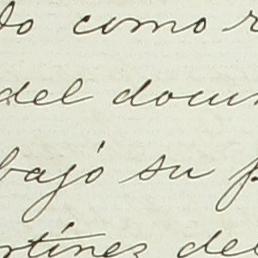 do como
del docum
bajó su
artínez del